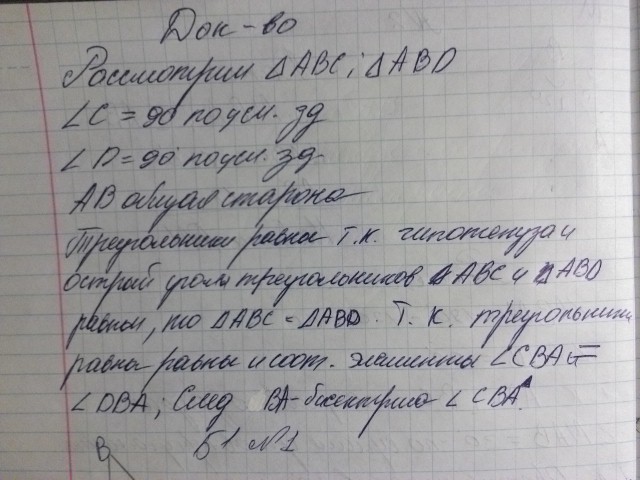 Док-во
Рассмотрим ΔABC; ΔABD
∠C = 90° по усл. зд
∠D = 90° по усл. зд.
AB общая сторона
Треугольники равны т.к. гипотенуза и
острый угол треугольников ΔABC и ΔABD
равны, то ΔABC = ΔABD. Т.к. треугольники
равны равны и соот. элементы ∠CBA =
∠DBA; След BA - биссектриса ∠CBA
B Б1 №1